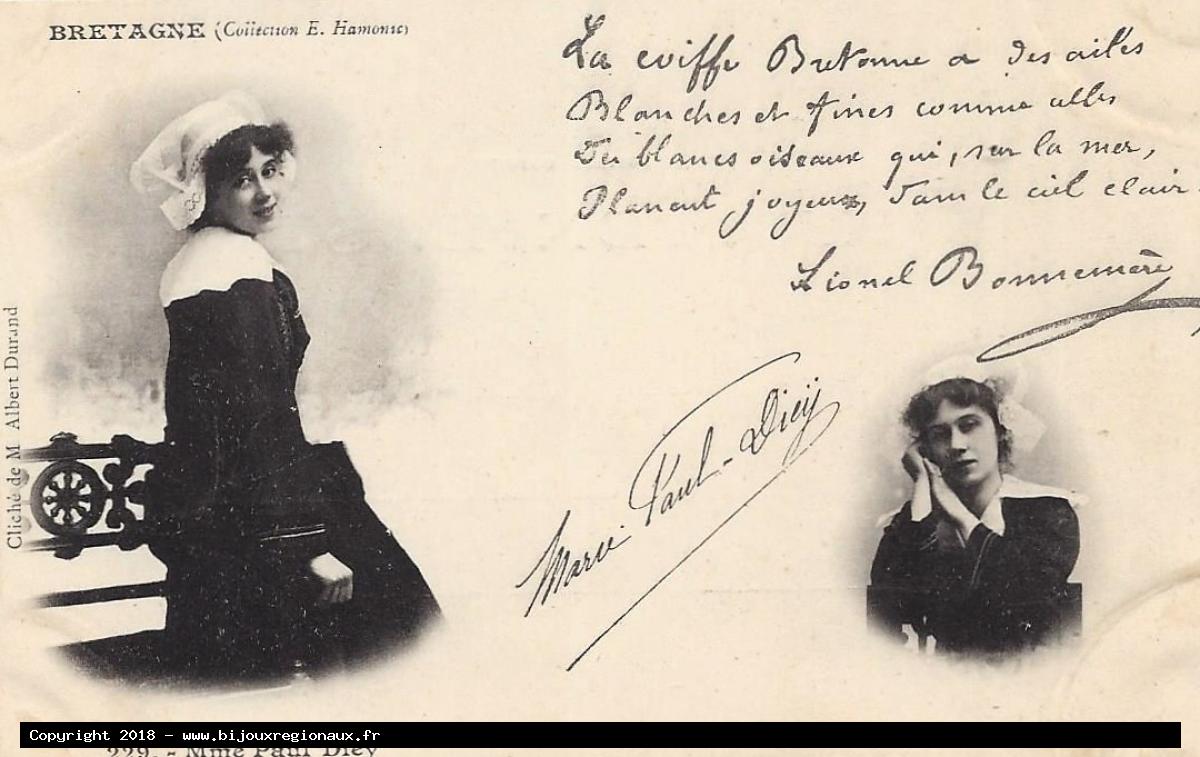 BRETAGNE (Collection E. Hamonic)
La coiffe Bretonne a des ailes
Blanches et fines comme celles
Des blancs oiseaux qui, sur la mer,
Planent joyeux, dans le ciel clair
Lionel Bonnemère
Marie Paul-Diey
Cliché de M Albert Durand
229. - Mme Paul Diey
Copyright 2018 - www.bijouxregionaux.fr